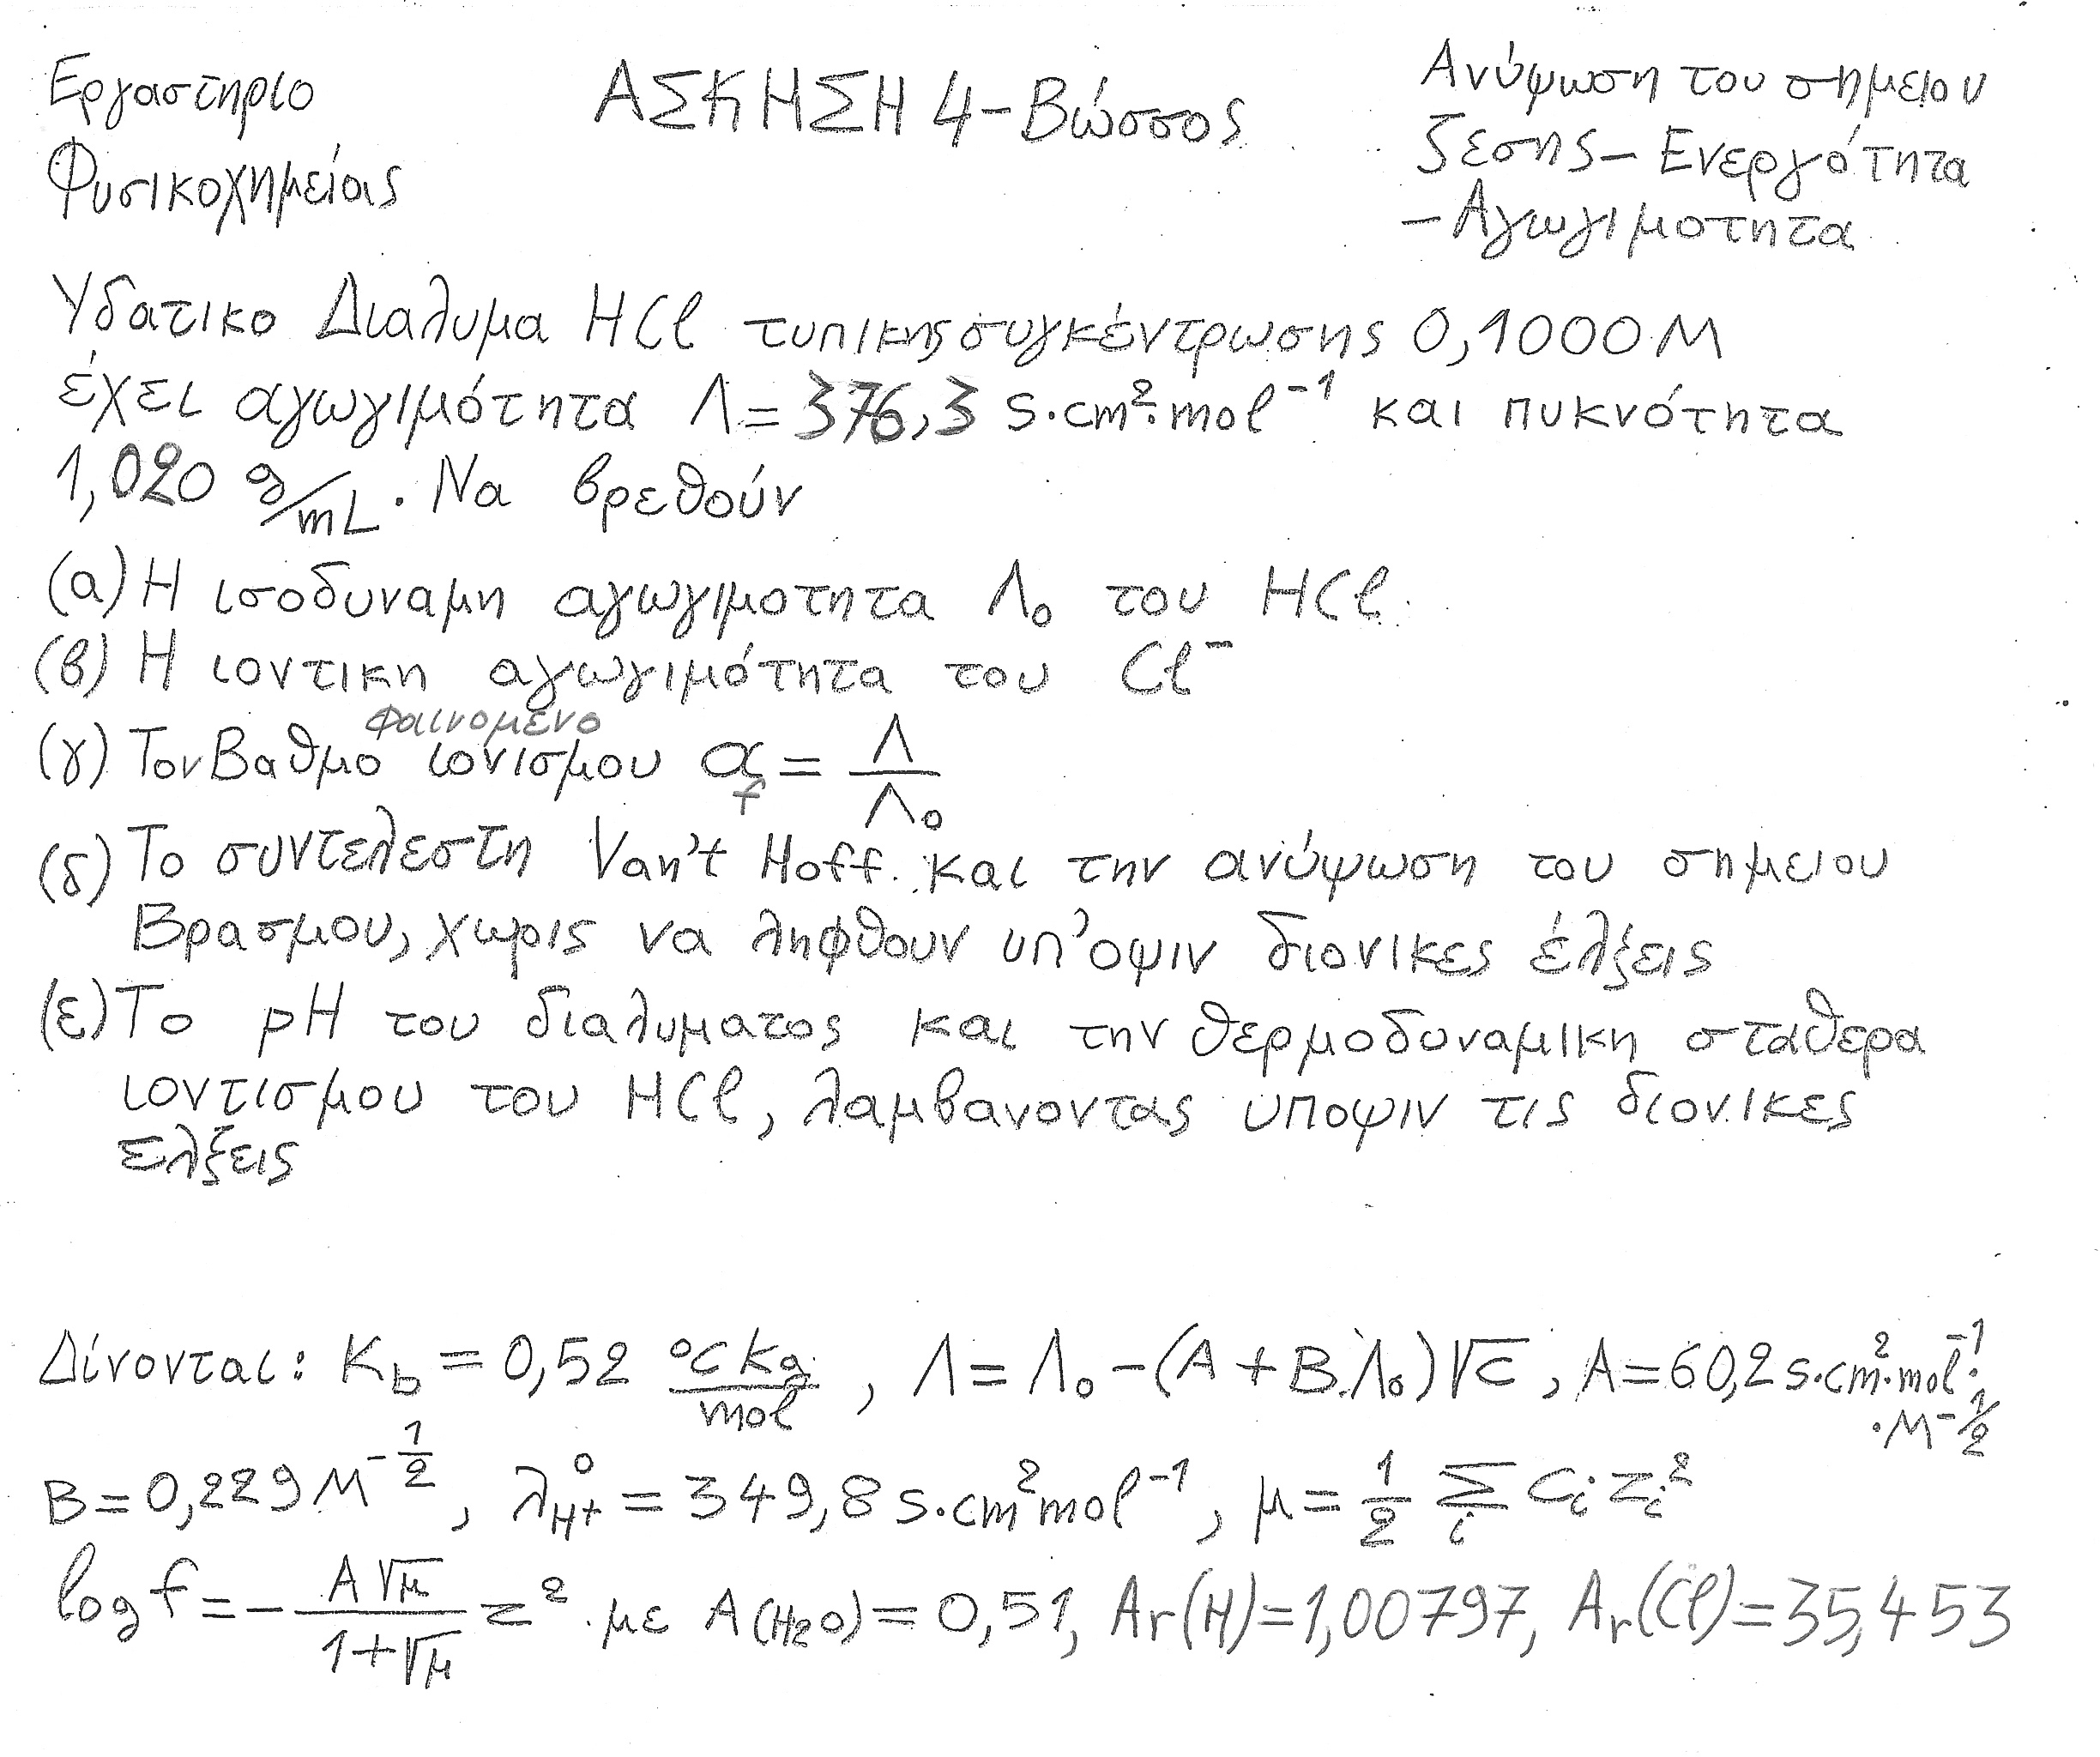 Εργαστηριο
Φυσικοχημείας
ΑΣΚΗΣΗ 4-Βώσσος
Ανύψωση του σημειου
ζεσης- Ενεργότητα
-Αγωγιμοτητα
Υδατικο Διαλυμα HCl τυπικης συγκέντρωσης 0,1000 M
έχει αγωγιμότητα Λ=376,3 S·cm²·mol⁻¹ και πυκνότητα
1,020 g/mL. Να βρεθούν
(α) Η ισοδυναμη αγωγιμοτητα Λ₀ του HCl
(β) Η ιοντικη αγωγιμότητα του Cl⁻
(γ) Τον Βαθμο φαινομενο ιονισμου α_f = Λ/Λ₀
(δ) Το συντελεστη Van't Hoff και την ανύψωση του σημειου
Βρασμου, χωρις να ληφθουν υπ'οψιν διονικες έλξεις
(ε) Το pH του διαλυματος και την θερμοδυναμικη σταθερα
ιοντισμου του HCl, λαμβανοντας υποψιν τις διονικες
ελξεις
Δίνονται: Kb = 0,52 °C kg/mol, Λ = Λ₀ - (A + B.Λ₀)√c, A=60,2 S·cm²·mol⁻¹·M^-1/2
B=0,229 M^-1/2, λ°H+ = 349,8 S·cm²mol⁻¹, μ = 1/2 Σi Ci Zi²
log f = - A√μ/(1+√μ) z² με A(H₂O) = 0,51, Ar(H)=1,00797, Ar(Cl)=35,453